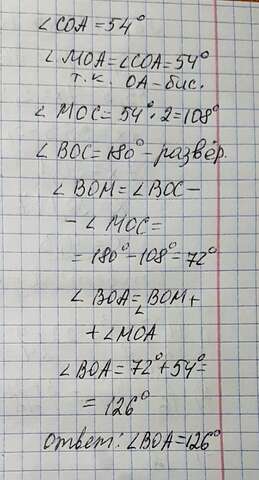 ∠COA = 54°
∠MOA = ∠COA = 54°
т.к. OA - бис.
∠MOC = 54° · 2 = 108°
∠BOC = 180° - развёр.
∠BOM = ∠BOC -
- ∠MOC =
= 180° - 108° = 72°
∠BOA = ∠BOM +
+ ∠MOA
∠BOA = 72° + 54° =
= 126°
ответ: ∠BOA = 126°